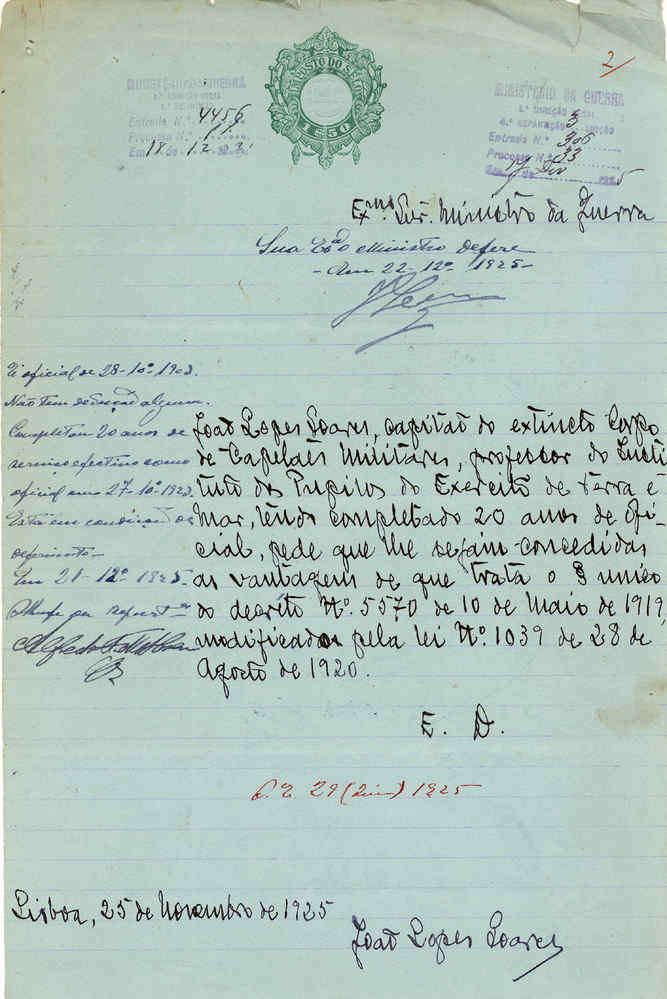 2/
IMPOSTO DO SELO
1$50
MINISTÉRIO DA GUERRA
1.ª DIRECÇÃO GERAL
Entrada N.º 4456
Processo N.º
Em 18 de 12
MINISTÉRIO DA GUERRA
DIRECÇÃO GERAL
4.ª REPARTIÇÃO SECÇÃO
Entrada N.º 306
Processo N.º 33
Ex.mo Snr. Ministro da Guerra
Sua Ex.ª o Ministro defere
- Em 22-12º 1925 -
É oficial de 28-10º-1903.
Não tem deducção alguma.
Completou 20 anos de
serviço efectivo como
oficial em 27-10º-1923.
Está em condições de
deferimento -
Em 21-12º-1925.
João Lopes Soares, capitão do extincto Corpo
de Capelães Militares, professor do Insti
tuto dos Pupilos do Exercito de Terra e
Mar, tendo completado 20 anos de ofi-
cial, pede que lhe sejam concedidas
as vantagens de que trata o § unico
do decréto Nº. 5570 de 10 de Maio de 1919,
modificado pela lei Nº. 1039 de 28 de
Agosto de 1920.
E. D.
29 1925
Lisboa, 25 de Novembro de 1925
João Lopes Soares